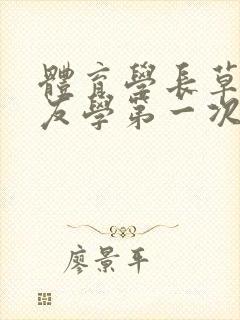 體育學長草
友學第一次
廖景平